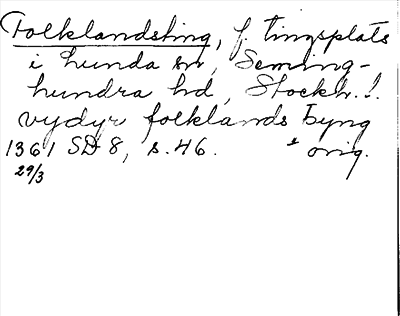 Folklandsting, f. tingsplats
i hunda sn, Seming-
hundra hd, Stockh. l.
vydyr folklands þyng
1361 SD 8, s. 46. orig.
29/3